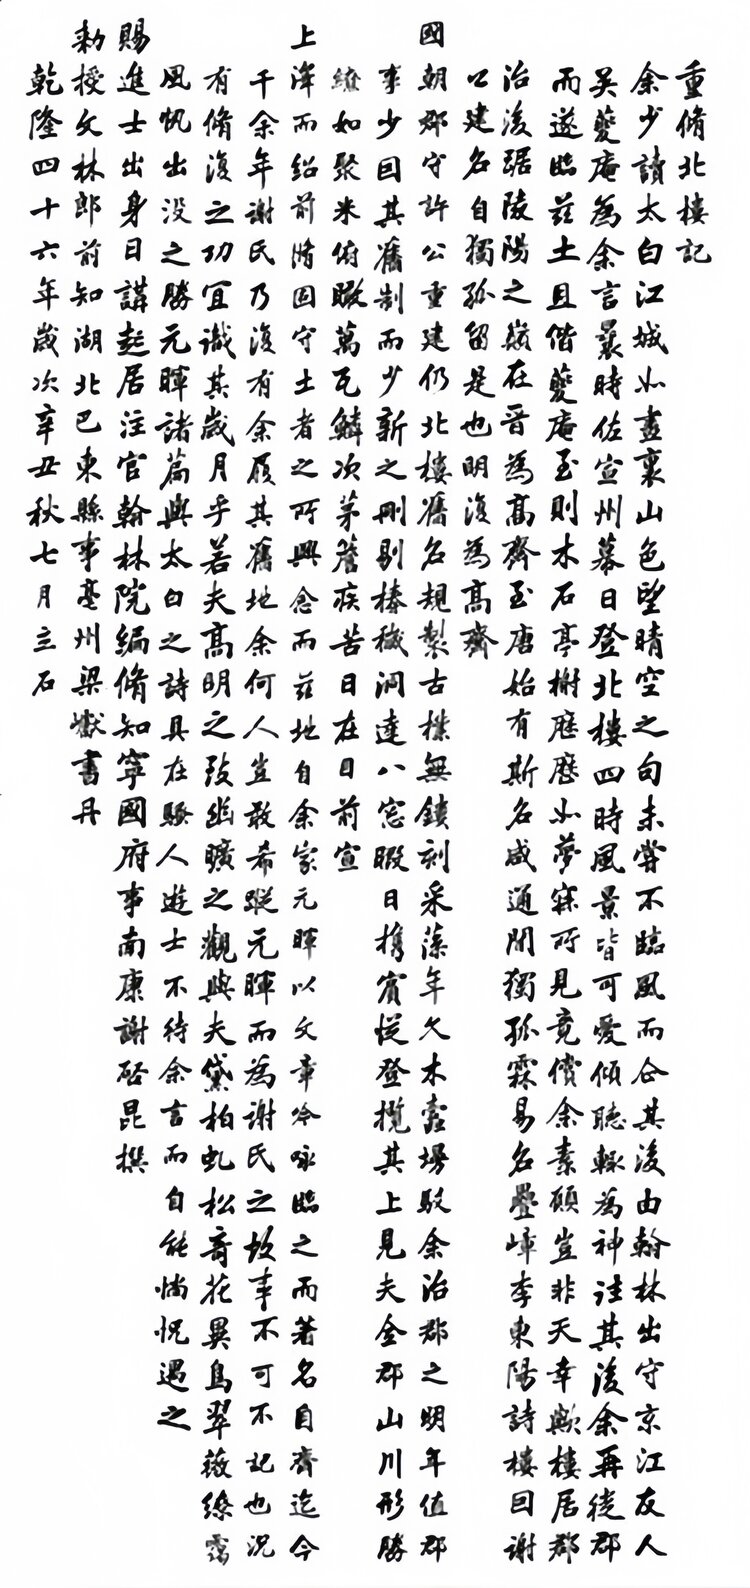 重脩北樓記
余少讀太白江城如畫裏山色望晴空之句未嘗不臨風而企其後由翰林出守京江友人
吳夔庵為余言曩時佐宣州幕日登北樓四時風景皆可愛傾聽輒為神注其後余再徙郡
而遂臨茲土且偕夔庵至則木石亭榭歷歷如夢寐所見竟償余素願豈非天幸歟樓居郡
治後踞陵陽之巔在晉為高齋至唐始有斯名咸通間獨孤霖易名疊嶂李東陽詩樓因謝
公建名自獨孤留是也明復為高齋
國朝郡守許公重建仍北樓舊名規製古樸無鏤刻采藻年久木蠹塲駁余治郡之明年值郡
事少因其舊制而少新之刪剔榛穢洞達八窓暇日携賓從登攬其上見夫全郡山川形勝
繚如聚米俯瞰萬瓦鱗次茅簷疾苦日在目前宣
上澤而紹前脩固守土者之所興念而茲地自余家元暉以文章吟咏臨之而著名自齊迄今
千余年謝氏乃復有余履其舊地余何人豈敢希蹤元暉而為謝氏之故事不可不記也況
有脩復之功宜識其歲月乎若夫高明之致幽曠之觀與夫黛柏虬松奇花異鳥翠薇繚靄
風帆出沒之勝元暉諸篇與太白之詩具在騷人遊士不待余言而自能惝怳遇之
賜進士出身日講起居注官翰林院編脩知寧國府事南康謝啟昆撰
勅授文林郎前知湖北巴東縣事亳州梁巘書丹
乾隆四十六年歲次辛丑秋七月立石